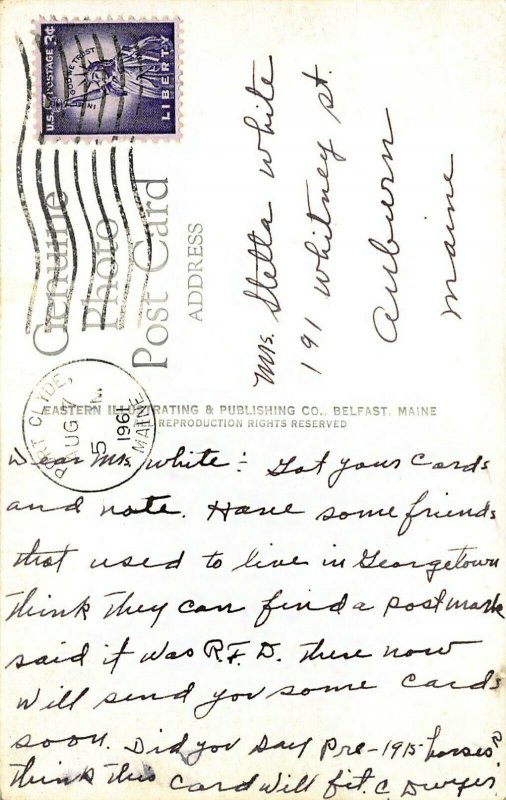 U.S. POSTAGE 3¢
IN GOD WE TRUST
LIBERTY
Genuine
Photo
Post Card
ADDRESS
Mrs. Stella White
191 Whitney St.
Auburn
Maine
PORT CLYDE,
AUG 7
5 M
1961
MAINE
EASTERN ILLUSTRATING & PUBLISHING CO., BELFAST, MAINE
ALL REPRODUCTION RIGHTS RESERVED
Dear Mrs. White:- Got your cards
and note. Have some friends
that used to live in Georgetown
think they can find a postmark
said it was R.F.D. there now
Will send you some cards
soon. Did you say pre-1915 horses?
think this card will fit. C. Dwyer